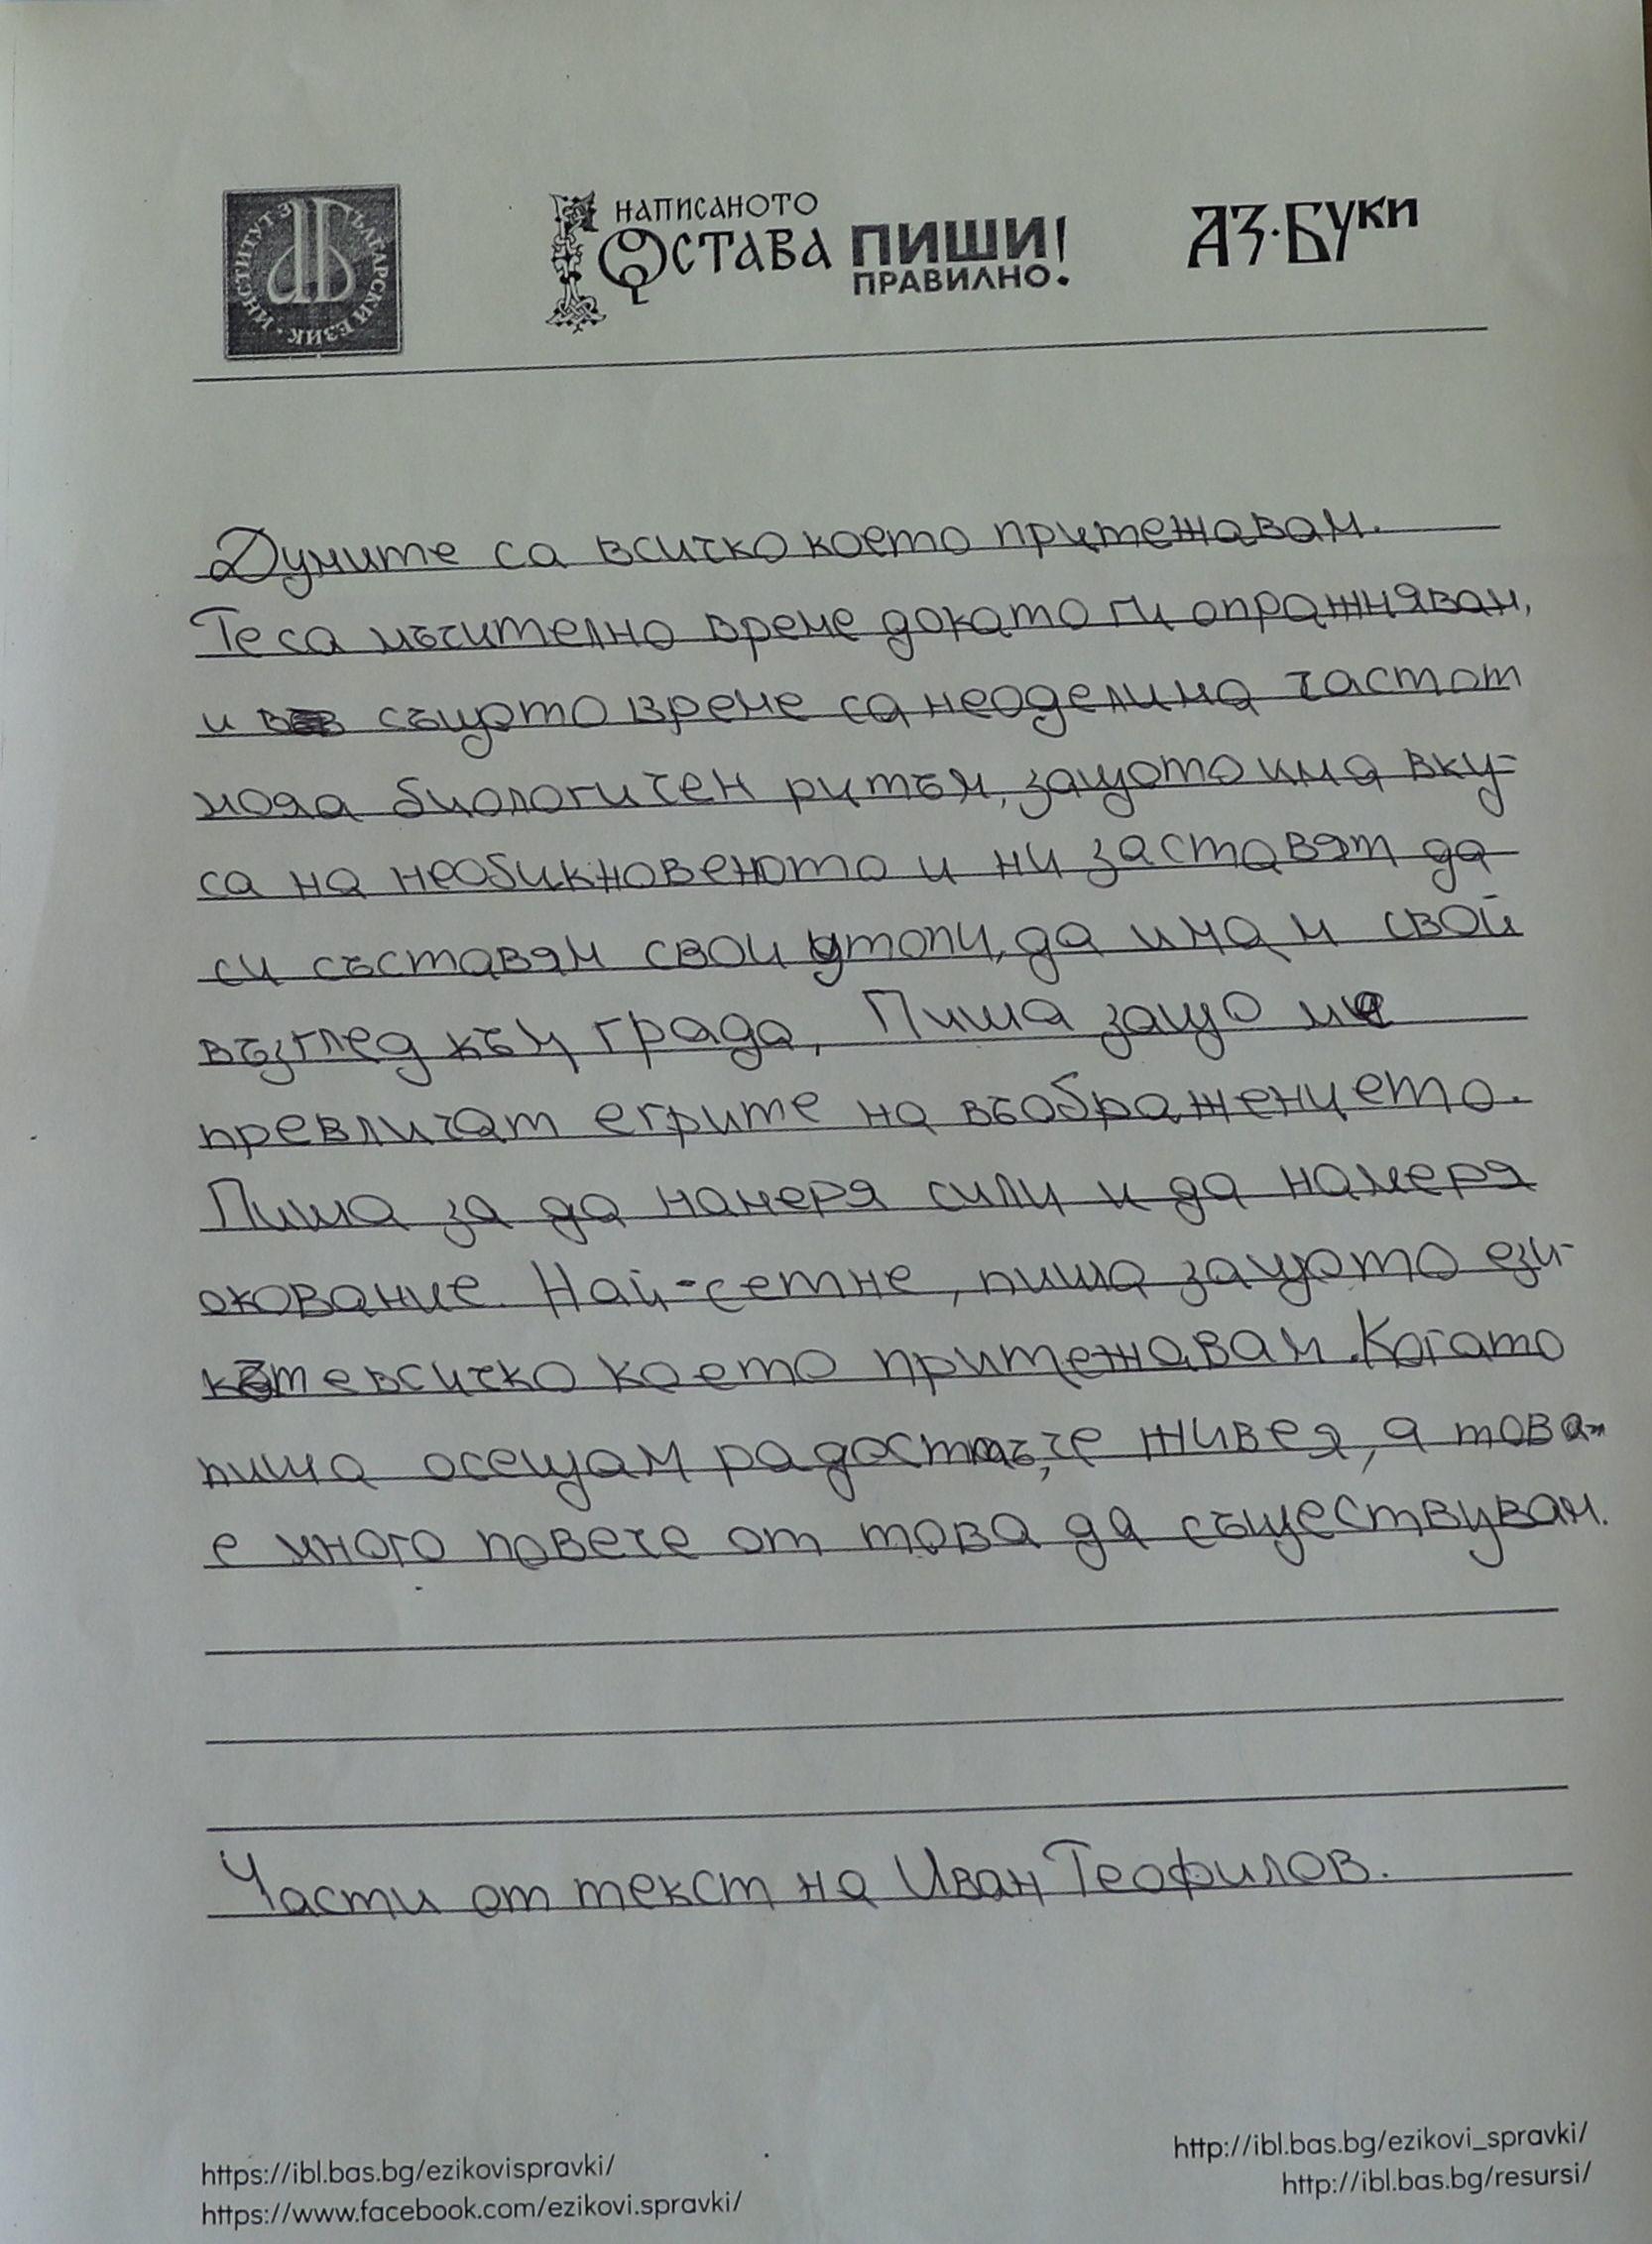 ИНСТИТУТ ЗА БЪЛГАРСКИ ЕЗИК
НАПИСАНОТО
ОСТАВА
ПИШИ!
ПРАВИЛНО.
АЗ·БУКИ
Думите са всичко което притежавам.
Те са мъчително време докато ги опражнявам,
и във същото време са неоделима част от
моя биологичен ритъм, защото има вку-
са на необикновеното и ни заставят да
си съставям свои утопи, да имам свой
възглед към града, Пиша защо ме
превличат егрите на въображението.
Пиша за да намеря сили и да намеря
окование. Най-сетне, пиша защото ези-
кът е всичко което притежавам. Когато
пиша осещам радостта, че живея, а това
е много повече от това да съществувам.
Части от текст на Иван Теофилов.
https://ibl.bas.bg/ezikovispravki/
https://www.facebook.com/ezikovi.spravki/
http://ibl.bas.bg/ezikovi_spravki/
http://ibl.bas.bg/resursi/